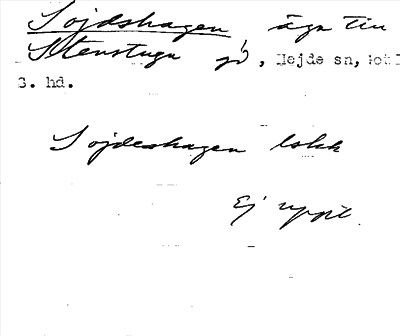 Sojdshagen, äga till
Stenstuga gd, Hejde sn, Gotl
S. hd.
Sojdeshagen lokk
Ej uppt.